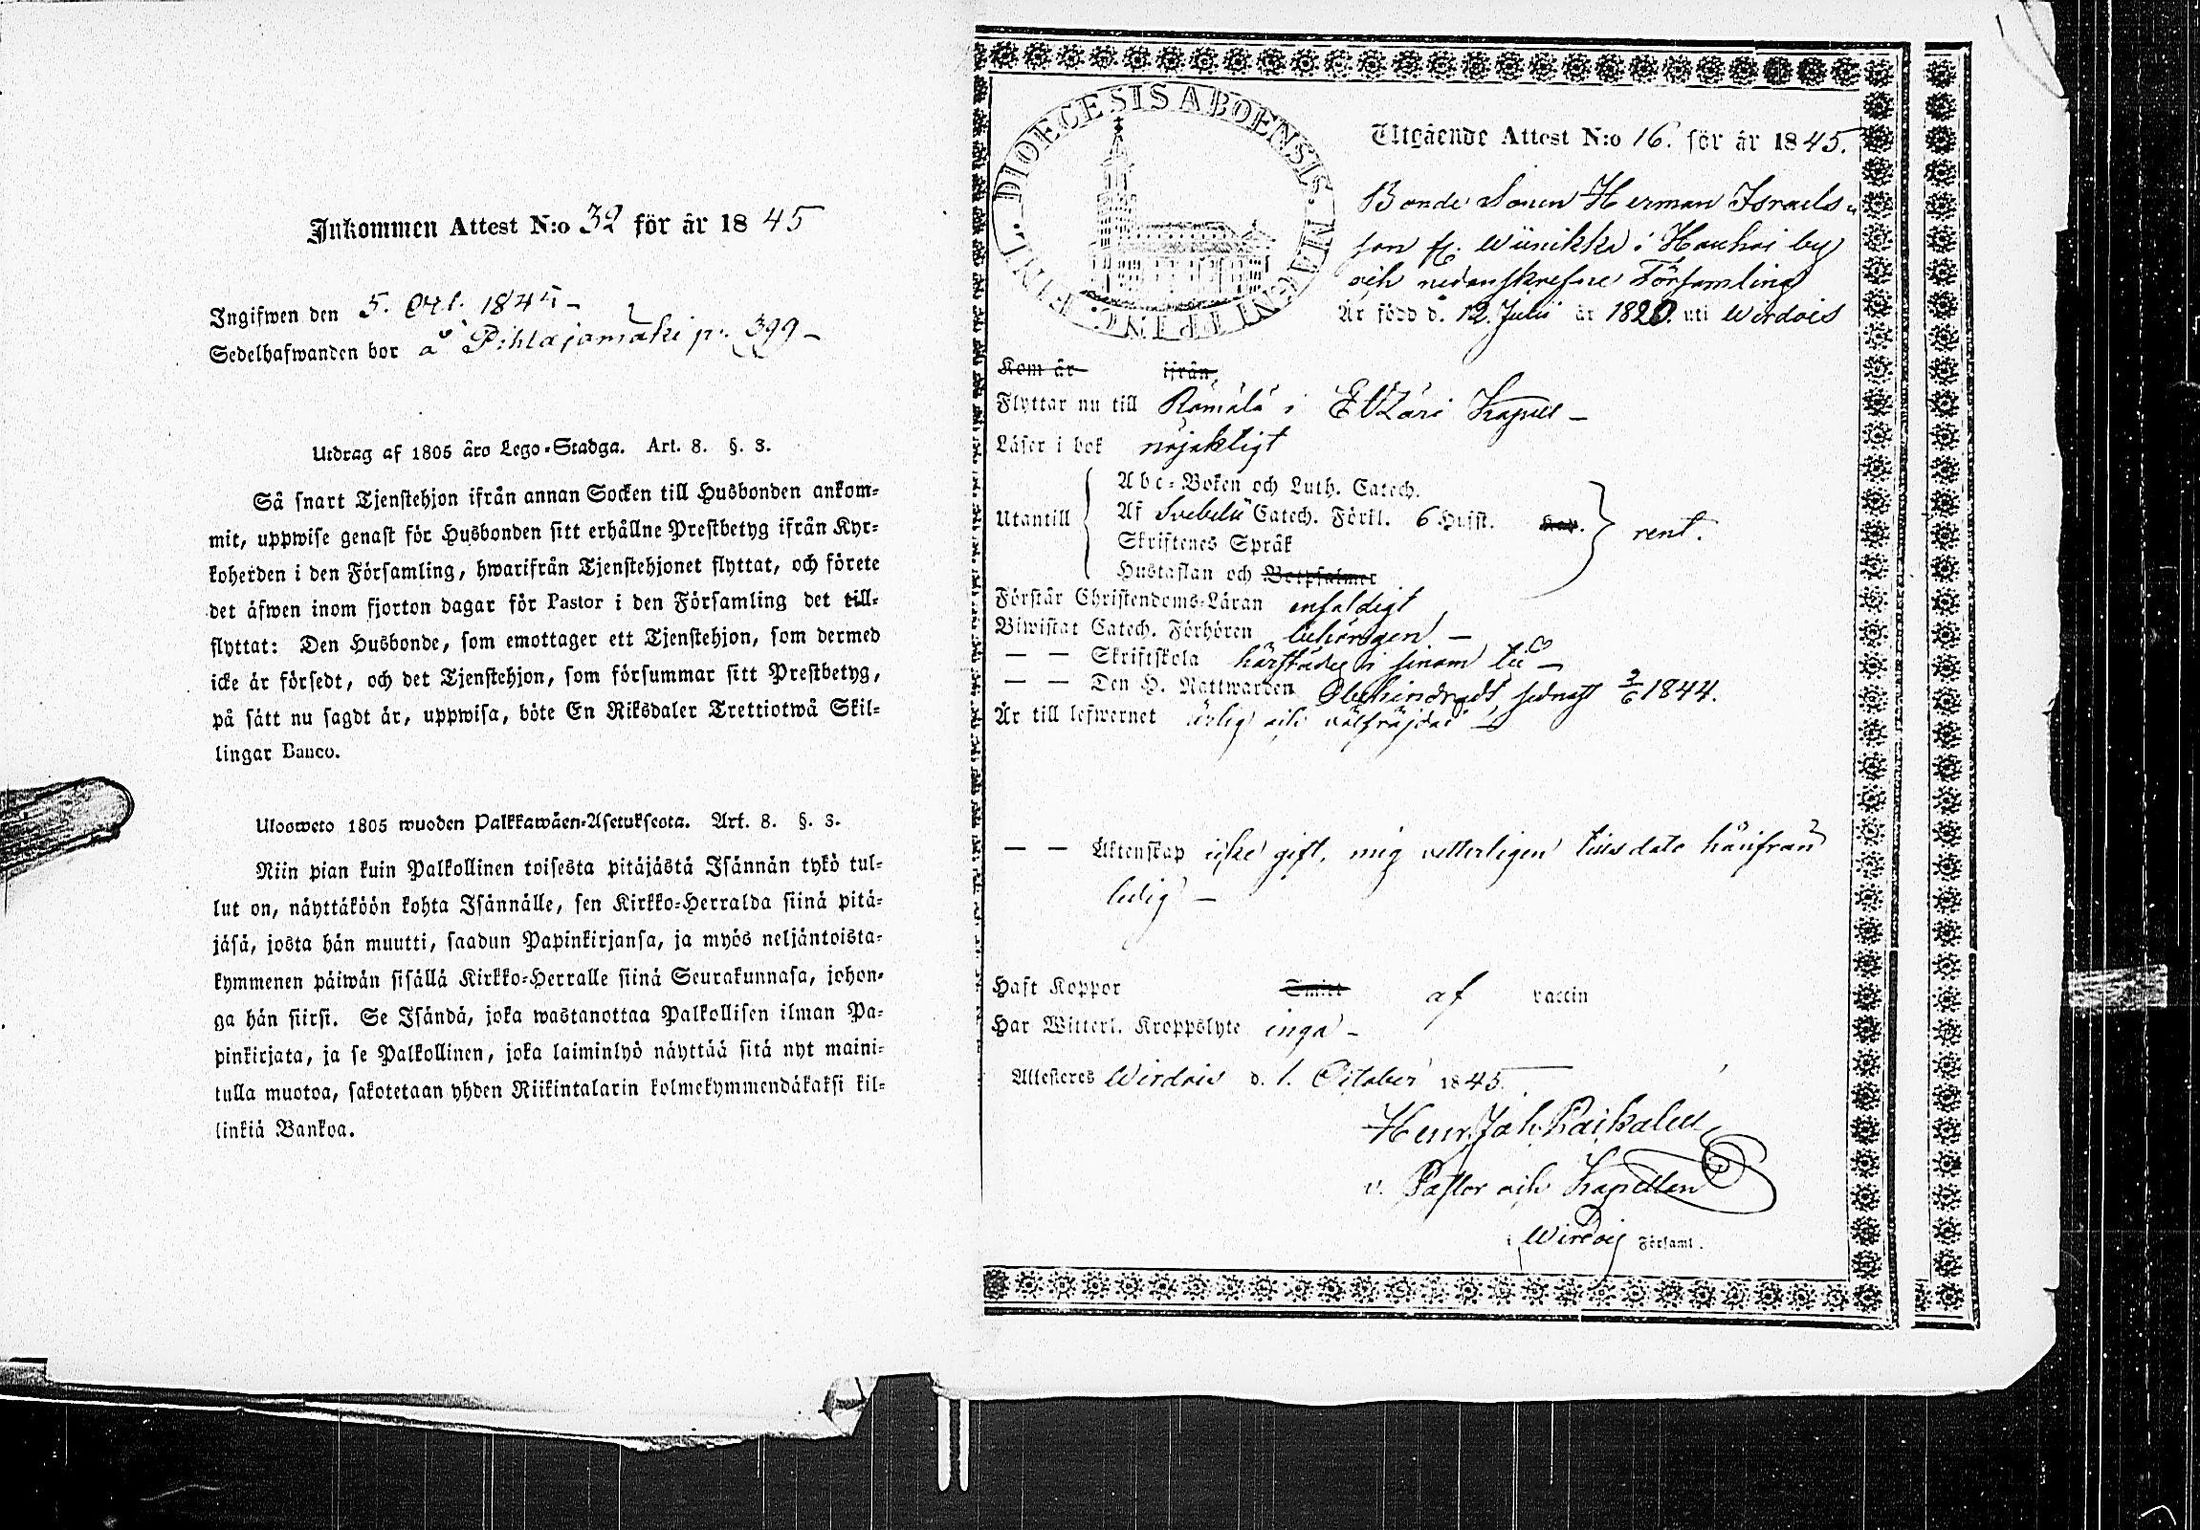 Inkommen Attest N:o 32 för år 1845
Ingifwen den 5. Oct. 1845 –
Sedelhafwanden bor å Pihlajamäki p. 399 –
Utdrag af 1805 åro Lego-Stadga. Art. 8. §. 3.
Så snart Tjenstehjon ifrån annan Socken till Husbonden ankom-
mit, uppwise genast för Husbonden sitt erhållne Prestbetyg ifrån Kyr-
koherden i den Församling, hwarifrån Tjenstehjonet flyttat, och förete
det äfwen inom fjorton dagar för Pastor i den Församling det till-
flyttat: Den Husbonde, som emottager ett Tjenstehjon, som dermed
icke är försedt, och det Tjenstehjon, som försummar sitt Prestbetyg,
på sätt nu sagdt är, uppwisa, böte En Riksdaler Trettiotwå Skil-
lingar Banco.
Ulosweto 1805 wuoden Palkkawäen-Asetuksesta. Art. 8. §. 3.
Niin pian kuin Palkollinen toisesta pitäjästä Isännän tykö tul-
lut on, näyttäköön kohta Isännälle, sen Kirkko-Herralda siinä pitä-
jäsä, josta hän muutti, saadun Papinkirjansa, ja myös neljäntoista-
kymmenen päiwän sisällä Kirkko-Herralle siinä Seurakunnasa, johon-
ga hän siirsi. Se Isändä, joka wastanottaa Palkollisen ilman Pa-
pinkirjata, ja se Palkollinen, joka laiminlyö näyttää sitä nyt maini-
tulla muotoa, sakotetaan yhden Riikintalarin kolmekymmendäkaksi kil-
linkiä Bankoa.
DIOECESIS ABOENSIS. MAGNI PRINC. FINL.
Utgående Attest N:o 16. för år 1845.
Bonde Sonen Herman Israels-
son fr. Wünikka i Hauhoi by
och nedanskrefne Församling
Är född d. 12. Juli år 1820. uti Wirdois
Kom år ifrån,
Flyttar nu till Rämälä i Etzäri Kapell –
Läser i bok nöjaktigt
Utantill
Abc-Boken och Luth. Catech.
Af Svebelii Catech. Förkl. 6 Hufst. Kap.
Skriftenes Språk
Hustaflan och Botpsalmer
rent.
Förstår Christendoms-Läran enfaldigt
Biwistat Catech. Förhören behörigen –
— — Skriftskola härstädes
— — Den H. Nattwarden Obehindradt, sednast 2/6 1844.
Är till lefwernet ärlig och välfräjdad –
— — Äktenskap icke gift, mig vetterligen tills dato härifrån
ledig –
Haft Koppor Smitt af vaccin
Har Witterl. Kroppslyte inga –
Attesteras Wirdois d. 1. October 1845.
Henr. Joh. Raikalus
v. Pastor och Kapellan
i Wirdois Församl.